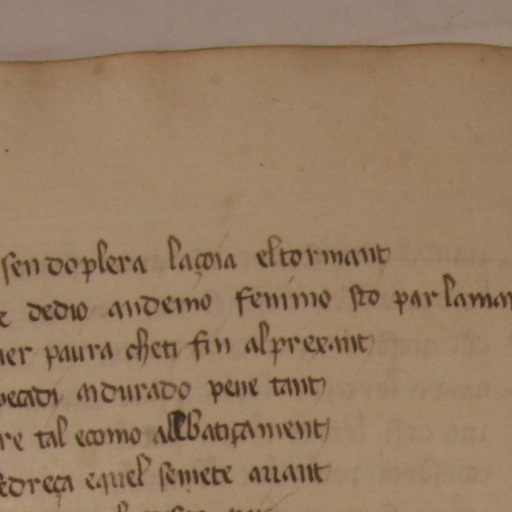 sen doplera laçoia eltormant
dedio andemo fenimo sto parlamen
paura cheti fin alpreeant
pecadi andurado pene tant
re tal ecomo albatiçament
edreça equel semete auant